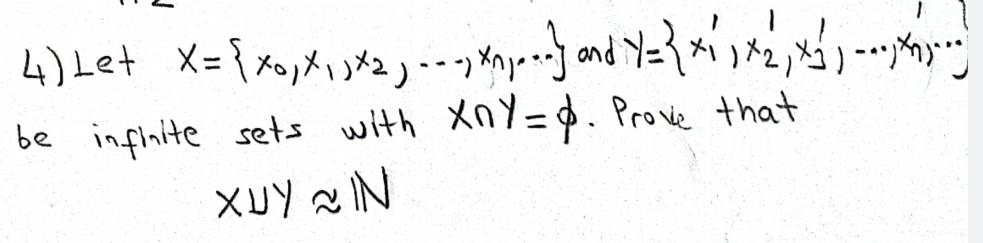 4) Let X = {x₀, x₁, x₂, ---, xₙ, ...} and Y = {x₁', x₂', x₃', ---, xₙ', ...}
be infinite sets with X∩Y = ϕ. Prove that
X∪Y ≈ ℕ